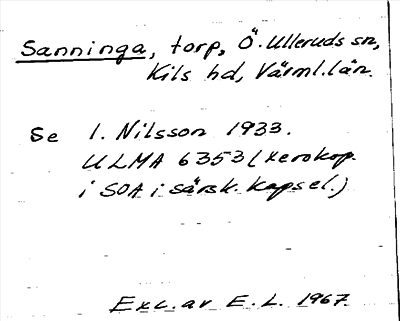 Sanninga, torp, Ö. Ulleruds sn,
Kils hd, Värml. län.
Se I. Nilsson 1933.
ULMA 6353 (xerokop.
i SOA i särsk. kapsel.)
Exc. av E. L. 1967